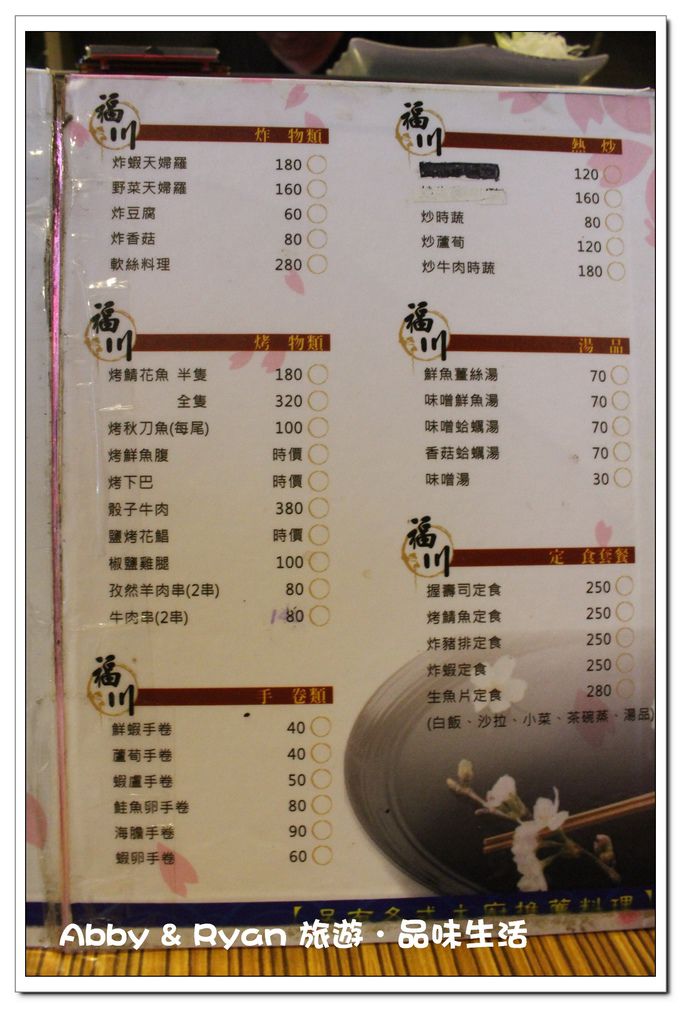 福川
炸 物類
炸蝦天婦羅 180
野菜天婦羅 160
炸豆腐 60
炸香菇 80
軟絲料理 280
福川
烤 物類
烤鯖花魚 半隻 180
全隻 320
烤秋刀魚(每尾) 100
烤鮮魚腹 時價
烤下巴 時價
骰子牛肉 380
鹽烤花鯧 時價
椒鹽雞腿 100
孜然羊肉串(2串) 80
牛肉串(2串) 80
福川
手 卷類
鮮蝦手卷 40
蘆筍手卷 40
蝦盧手卷 50
鮭魚卵手卷 80
海膽手卷 90
蝦卵手卷 60
福川
熱 炒
120
160
炒時蔬 80
炒蘆筍 120
炒牛肉時蔬 180
福川
湯 品
鮮魚薑絲湯 70
味噌鮮魚湯 70
味噌蛤蠣湯 70
香菇蛤蠣湯 70
味噌湯 30
福川
定 食套餐
握壽司定食 250
烤鯖魚定食 250
炸豬排定食 250
炸蝦定食 250
生魚片定食 280
(白飯、沙拉、小菜、茶碗蒸、湯品)
Abby & Ryan 旅遊・品味生活